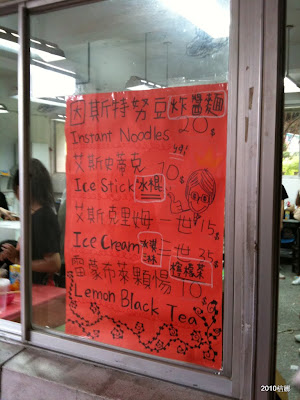 因斯特努豆炸醬麵
20$
Instant Noodles
艾斯史蒂克
10$
Ice Stick 冰棍
艾斯克里姆一世 15$
Ice Cream 冰淇淋 二世 25$
雷蒙布萊顆惕 檸檬茶
10$
Lemon Black Tea
2010桔娜